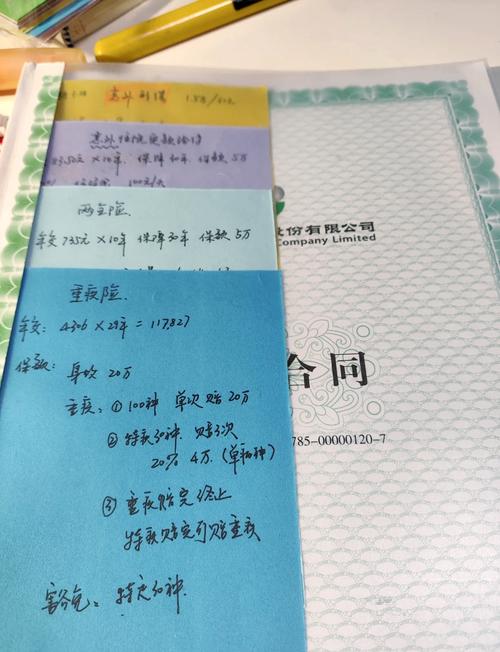 意外
意外住院定额给付
×10年 保障30年 保额5万
100元/天
两全险
年交735元×10年 保障30年 保额5万
重疾险
年交: 4306×29年=117,827
保额: 身故20万
重疾: ①100种 单次赔20万
②特疾30种 赔3次
20% 4万(单病种)
③重疾赔完终止
特疾赔完可赔重疾
豁免: 特定30种
份有限公司
Company Limited
合同
785-00000120-7